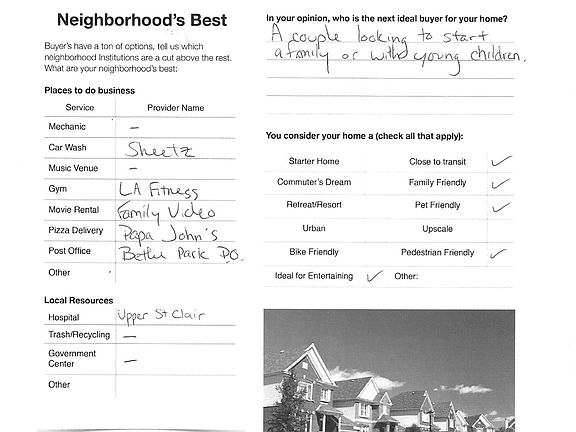 Neighborhood's Best
Buyer's have a ton of options, tell us which
neighborhood Institutions are a cut above the rest.
What are your neighborhood's best:
Places to do business
Service Provider Name
Mechanic –
Car Wash Sheetz
Music Venue –
Gym LA Fitness
Movie Rental Family Video
Pizza Delivery Papa John's
Post Office Bethel Park P.O.
Other
Local Resources
Hospital Upper St Clair
Trash/Recycling –
Government
Center –
Other
In your opinion, who is the next ideal buyer for your home?
A couple looking to start
a family or with young children.
You consider your home a (check all that apply):
Starter Home Close to transit ✓
Commuter's Dream Family Friendly ✓
Retreat/Resort Pet Friendly ✓
Urban Upscale
Bike Friendly Pedestrian Friendly ✓
Ideal for Entertaining ✓ Other: